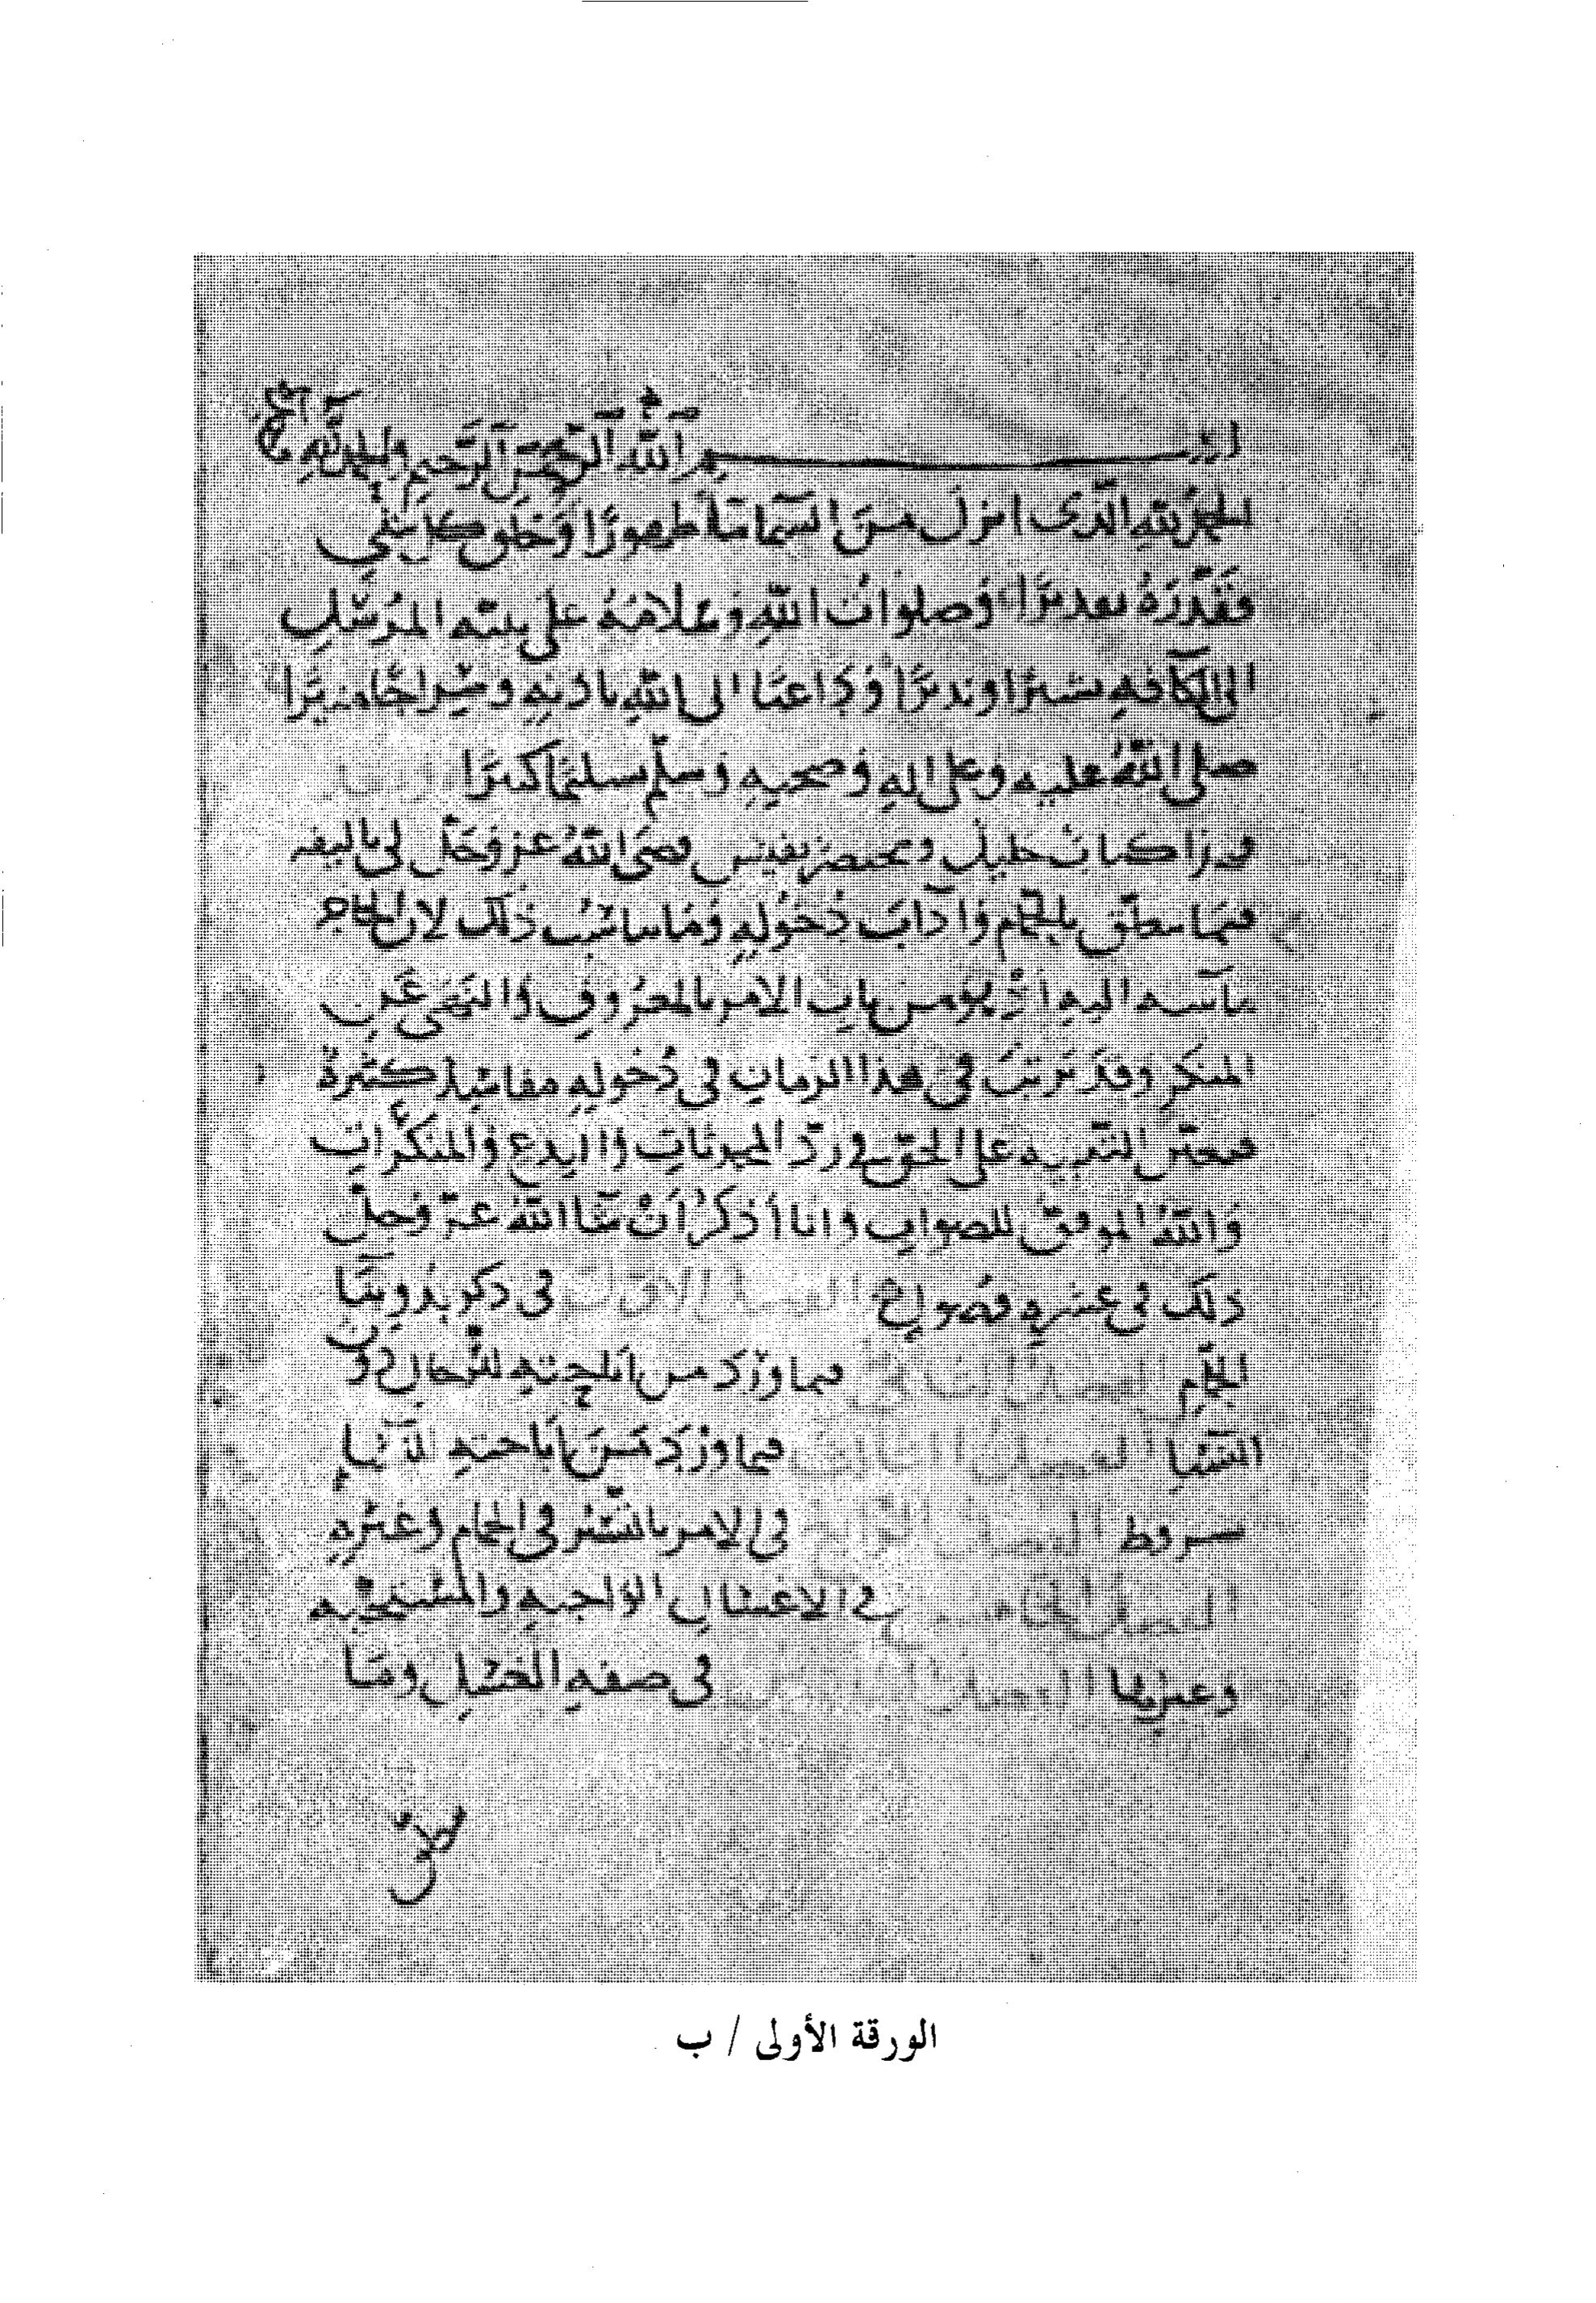 بسم الله الرحمن الرحيم والحمد لله
الحمد لله الذي انزل من السماء ماً طهورًا وَخلق كل شي
فقدّرَهُ تقديرًا وَصلواتُ الله وسلامُهُ على نبيّه المرُسَل
الى الكافه بشيرًا ونذيرًا وَدَاعيًا الى اللهِ باذنِهِ وسِرَاجًا منيرًا
صلى اللهُ عليه وعلى الهِ وَصحبهِ وَسلّم تسليمًا كثيرًا
فهذا كتابٌ جليل ومختصرٌ نفيس قضى اللهُ عز وَجَلّ لى تاليفه
فيما يتعلق بالحمّام وَآدَاب دُخُولِهِ وَمَا يناسُب ذَلك لان الحاجة
ماسه اليهِ اذْ هو من بابِ الامر بالمعرُوفِ وَالنهى عَن
المنكر وقد ترتّبَ فى هذا الزمانِ فى دُخولِهِ مفاسِد كثيرةٌ
فيتعيّن التنبيه على الحق وردّ المحدثاتِ وَالبدع وَالمنكرَاتِ
وَاللهُ الموفق للصوابِ وانا أذكُر اِنْ شَا اللهُ عزّ وَجلّ
ذلك فى عشرهِ فصول الفصل الاول فى ذكر بدوِ شان
الحمّام الفصل الثانى فيما وَرَدَ من اباحتهِ للرجال دُون
النّسَا الفصل الثالث فيما وَرَدَ مِن اِباحتهِ للنّسَا
بشروط الفصل الرابع فى الامر بالتَسَتُّر فى الحمام وَغيرِهِ
الفصل الخامس فى الاغسال الوَاجبهِ والمُستحبّه
وغيرها الفصل السادس فى صفهِ الغسْلِ ومَا
الورقة الأولى / ب